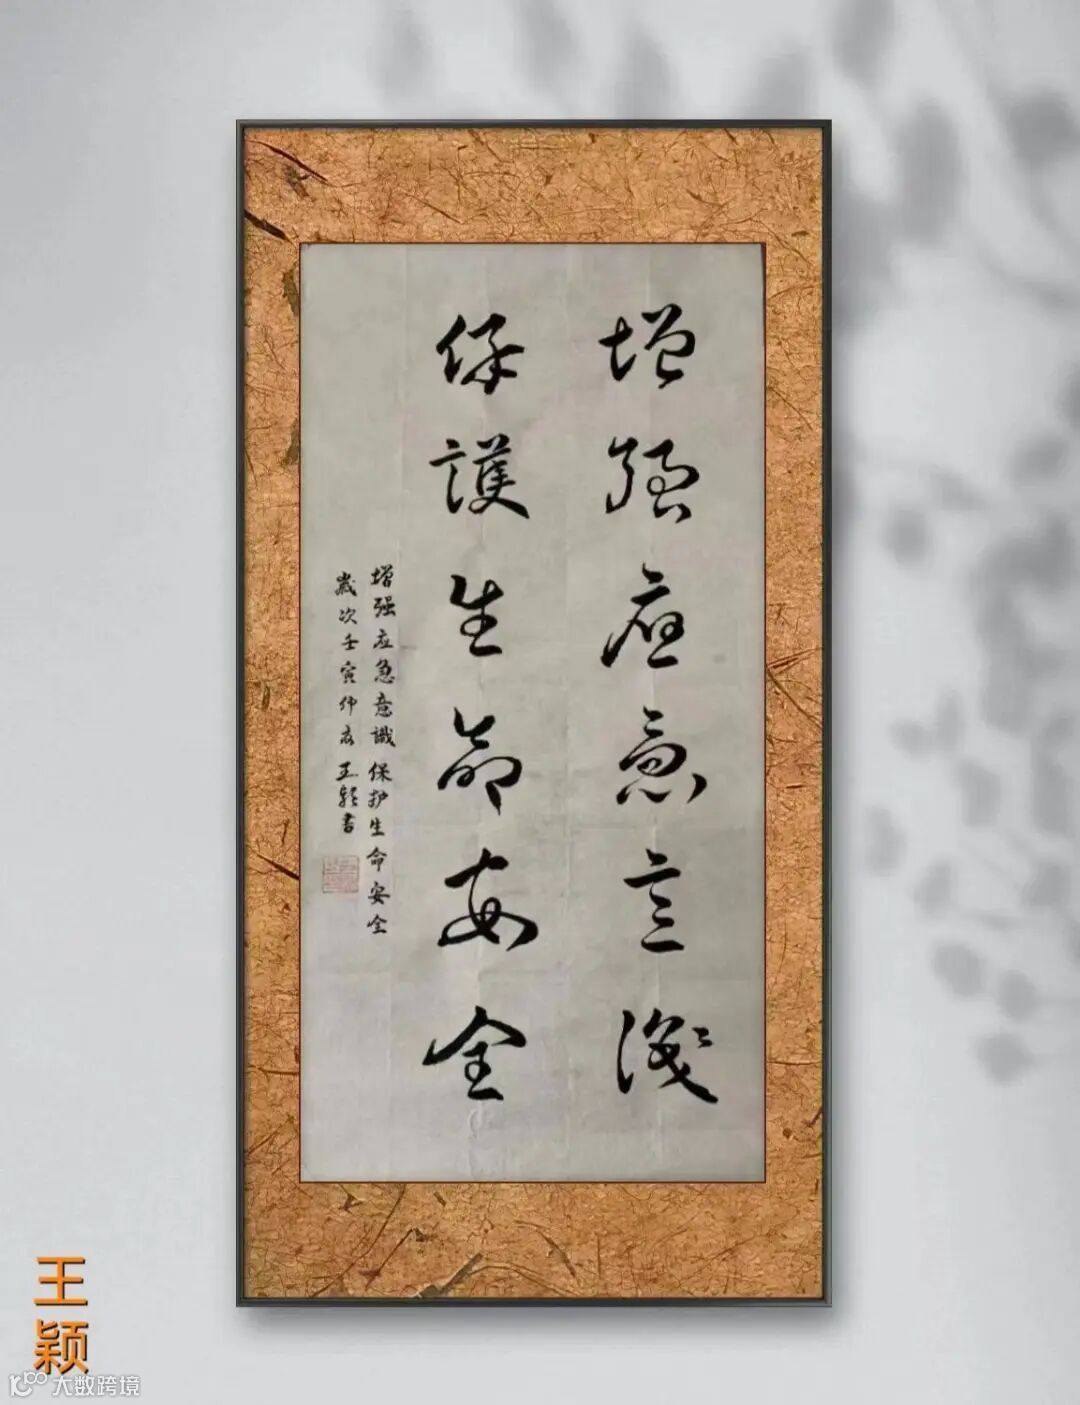 增强应急意识
保護生命安全
增强应急意識 保护生命安全
歲次壬寅仲春 王颖書
王颖
大数跨境